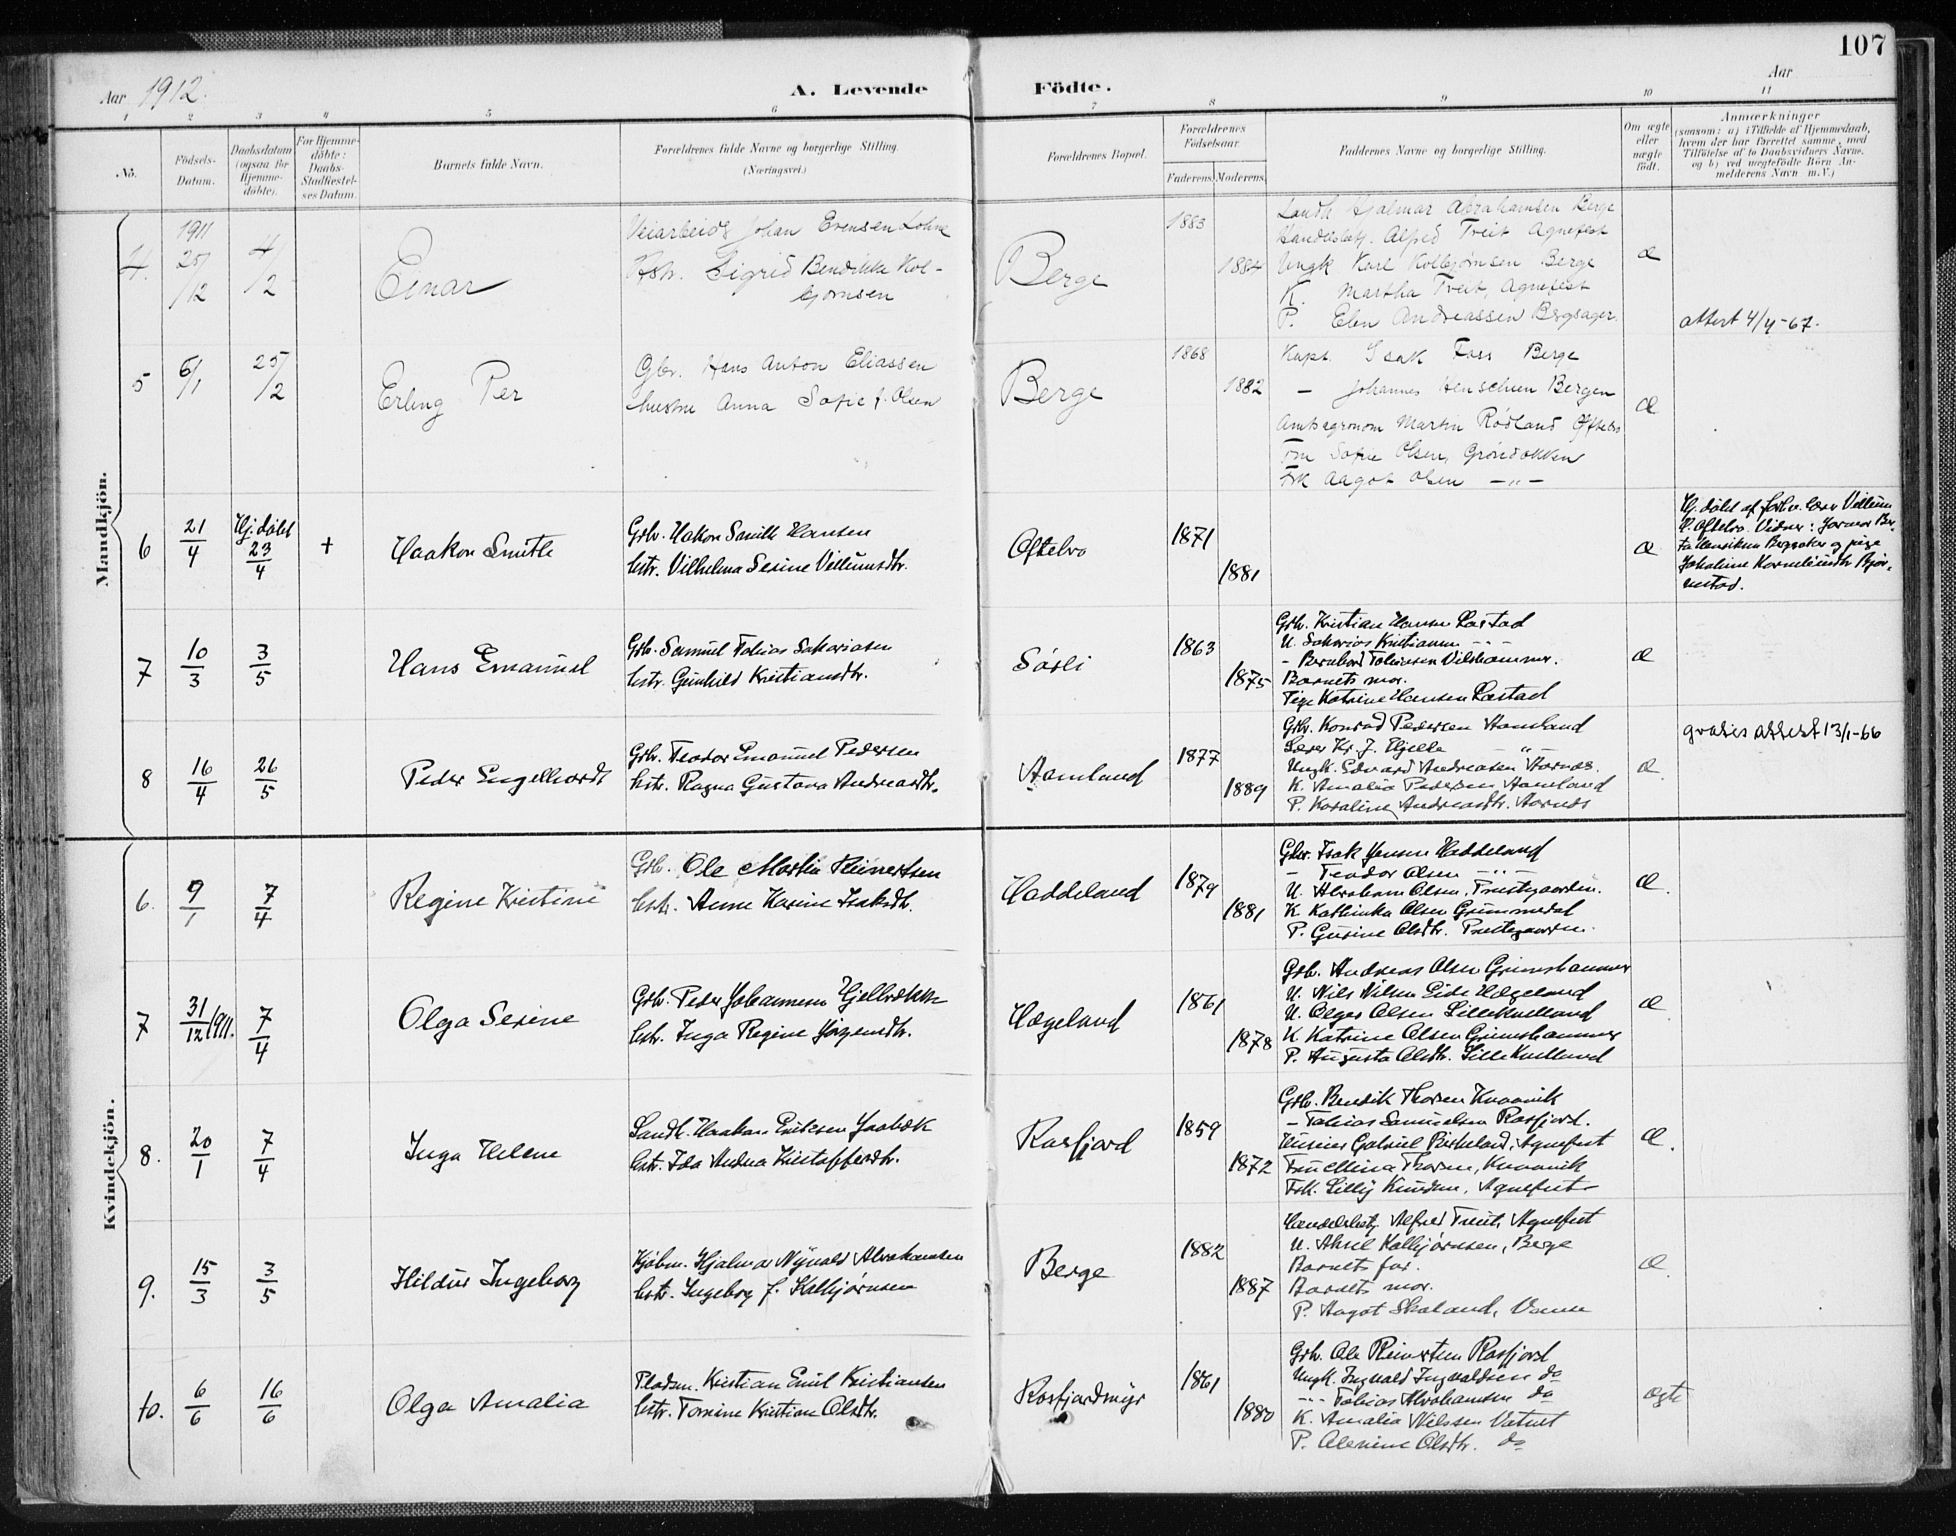 107
Aar 1912.
A. Levende Födte.
Aar
1 2 3 4 5 6 7 8 9 10 11
No.
Födsels-
Datum.
Daabsdatum
(ogsaa for
Hjemme-
döbte).
For Hjemme-
döbte:
Daabs-
Stadfæstel-
ses Datum.
Barnets fulde Navn.
Forældrenes fulde Navne og borgerlige Stilling.
(Næringsvei.)
Forældrenes Bopæl.
Forældrenes
Födselsaar.
Faderens. Moderens.
Faddernes Navne og borgerlige Stilling.
Om ægte
eller
uægte
födt.
Anmærkninger
(saasom: a) i Tilfælde af Hjemmedaab,
hvem der har forrettet samme, med
Tilföielse af to Daabsvidners Navne,
og b) ved uægtefödte Börn An-
melderens Navn m.V.)
Mandkjön.
4. 1911 25/12 4/2
Einar
Veiarbeid Johan Evensen Lohne
Hstr. Sigrid Bendikke Kol-
bjørnsen
Berge
1883
1884
Landh Hjalmar Abrahamsen Berge
Handelsbetj. Alfred Treit Agnefest
Ungk Karl Kolbjørnsen Berge
K. Martha Treit, Agnefest
P. Elen Andreassen Bergsager.
æ
attest 4/4-67.
5 6/1 25/2
Erling Per
Gbr. Hans Anton Eliassen
hustru Anna Sofie f. Olsen
Berge
1868
1882
Kapt. Isak Foss Berge
— Johannes Henschien Bergen
Amtsagronom Martin Rødland Øftebro
Fru Sofie Olsen, Grøndokken
Frk Aagot Olsen —„—
æ
6 21/4 Hj. døbt 23/4 +
Haakon Smith
Grb. Hakon Smith Hansen
hstr. Vilhelma Serine Villumsdtr.
Øftebro
1871
1881
æ
Hj. døbt af forhv. lærer Villum
H. Øftebro. Vidner: Jormor Ber-
ta Henriksen Bergsaker og pige
Jakobine Korneliusdtr Bjør-
nestad.
7 10/3 3/5
Hans Emanuel
Grb. Samuel Tobias Sakariasen
hstr. Gunhild Kristiansdtr.
Sørli
1863
1875
Grb. Kristian Hansen Rastad
U. Sakarias Kristiansen —„—
- Bernhard Tobiassen Vilshammer.
Barnets mor.
Pige Katrine Hansen Rastad
æ
8 16/4 26/5
Peder Engelhardt
Grb. Teodor Emanuel Pedersen
hstr. Ragna Gustava Andreasdtr.
Aamland
1877
1889
Grb. Konrad Pedersen Aamland
Lærer Kr. J. Egeli —„—
Ungk. Edvard Andreasen Aarnes.
K. Amalia Pedersen Aamland
P. Karoline Andreasdtr. Aarnes
æ
gratis attest 13/1-66
Kvindekjön.
6. 9/1 7/4
Regine Kristine
Grb. Ole Martin Reinertsen
hstr. Anne Karine Isaksdt.
Haddeland
1879
1881
Gbr. Isak Jensen Haddeland
- Teodor Olsen —„—
U. Abraham Olsen, Prestegaarden.
K Kathinka Olsen Grummedal
P. Gusine Olsdtr. Prestegaarden.
æ.
7 31/12 1911. 7/4
Olga Serine
Grb. Peder Johannesen Hjelbakken
hstr. Inga Regine Jørgensdtr.
Hægeland
1861
1878
Grb. Andreas Olsen Grimshammer
U. Nils Nilsen Eide Hægeland
U. Olger Olsen Lillekvelland
K Katrine Olsen Grimshammer
P. Augusta Olsdtr. Lillekvelland
æ
8. 20/1 7/4
Inga Helene
Landh. Haakon Eriksen Jaabæk
hstr. Ida Andrea Kristoffersdtr.
Rosfjord
1859
1872
Grb. Bendik Thorsen Kvaavik
- Tobias Samuelsen Rosfjord.
Husm. Gabriel Birkeland, Agnefest
Fru Elina Thorsen, Kvaavik
Frk. Lilly Knudsen, Agnefest
æ.
9. 15/3 3/5
Hildur Ingeborg
Kjøbm. Hjalmar Nyvald Abrahamsen
hstr. Ingeborg f. Kolbjørnsen
Berge
1882
1887
Handelsbetj. Alfred Treit, Agnefest
U. Aksel Kolbjørnsen, Berge
Barnets far.
Barnets mor.
P. Aagot Skoland, Vanse
æ.
10. 6/6 16/6
Olga Amalia
Pladsm. Kristian Emil Kristiansen
hstr. Tomine Kristiane Olsdtr.
Rosfjordmyr
1861
1880
Grb. Ole Reinertsen Rosfjord
Ungk. Ingvald Ingvaldsen do
-"- Tobias Abrahamsen do
K. Amalia Nilssen Vatnet
P. Alenine Olsdtr. do
ægte